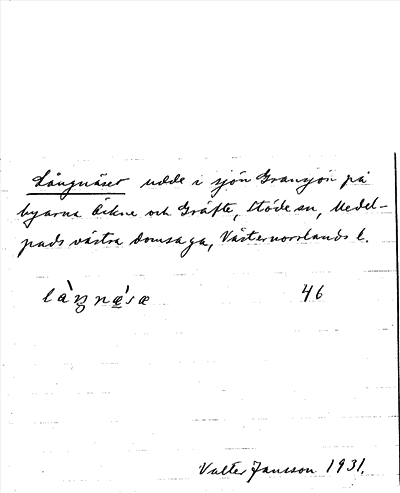 Långnäset udde i sjön Gransjön på
byarna Öckne och Gräfte, Stöde sn, Medel-
pads västra domsaga, Västernorrlands l.
làŋnǽsæ 46
Valter Jansson 1931.